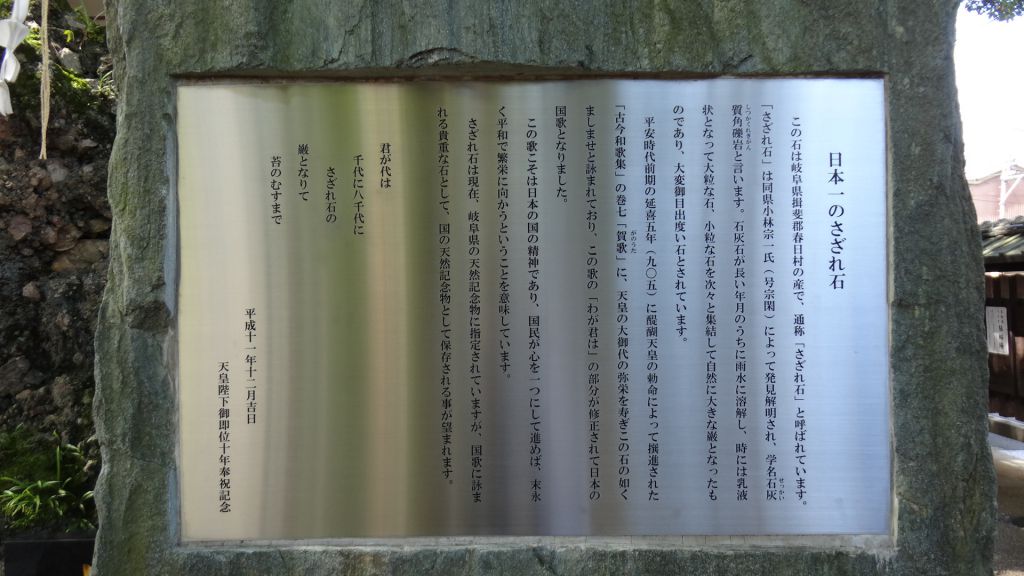 日本一のさざれ石
この石は岐阜県揖斐郡春日村の産で、通称「さざれ石」と呼ばれています。
「さざれ石」は同県小林宗一氏（号宗閑）によって発見解明され、学名石灰
質角礫岩と言います。石灰石が長い年月のうちに雨水に溶解し、時には乳液
状となって大粒な石、小粒な石を次々と集結して自然に大きな巌となったも
のであり、大変御目出度い石とされています。
平安時代前期の延喜五年（九〇五）に醍醐天皇の勅命によって撰進された
「古今和歌集」の巻七「賀歌」に、天皇の大御代の弥栄を寿ぎこの石の如く
ましませと詠まれており、この歌の「わが君は」の部分が修正されて日本の
国歌となりました。
この歌こそは日本の国の精神であり、国民が心を一つにして進めば、末永
く平和で繁栄に向かうということを意味しています。
さざれ石は現在、岐阜県の天然記念物に指定されていますが、国歌に詠ま
れる貴重な石として、国の天然記念物として保存される事が望まれます。
君が代は
千代に八千代に
さざれ石の
巌となりて
苔のむすまで
平成十一年十二月吉日
天皇陛下御即位十年奉祝記念